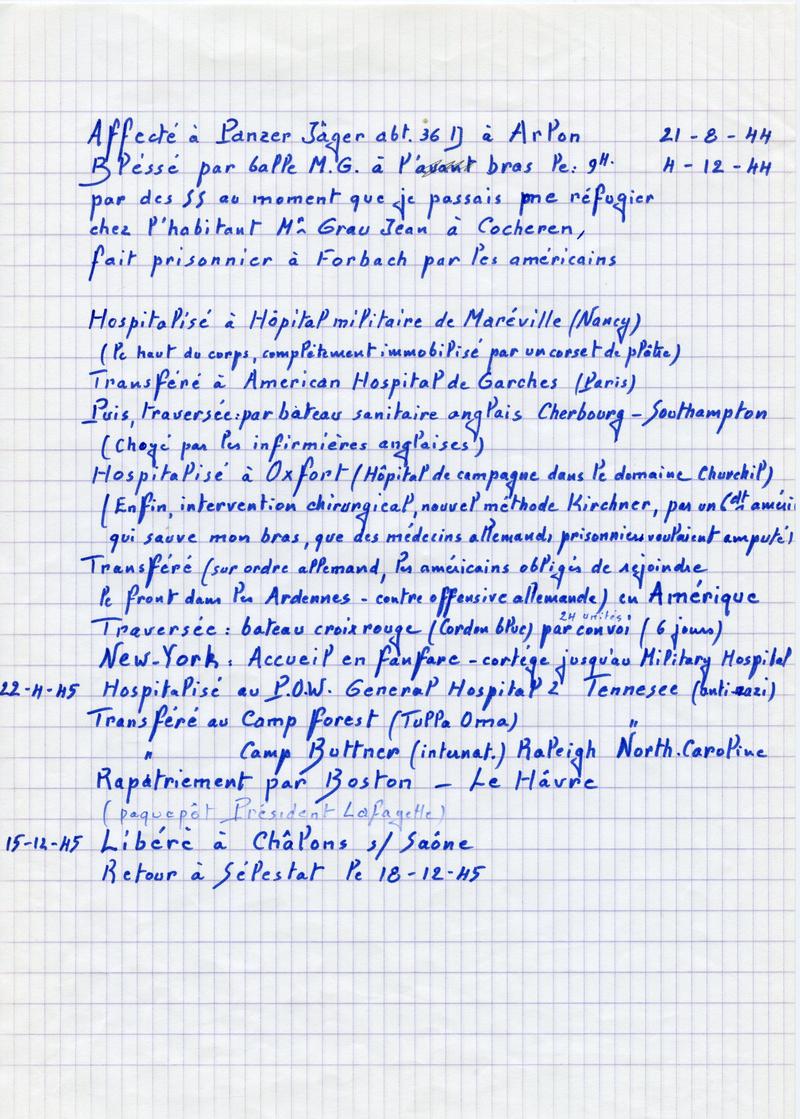 Affecté à Panzer Jäger abt. 36 à Arlon 21-8-44
Bléssé par balle M.G. à l'avant bras le: 9H. 4-12-44
par des SS au moment que je passais me réfugier
chez l'habitant Mr Grau Jean à Cocheren,
fait prisonnier à Forbach par les américains
Hospitalisé à Hôpital militaire de Maréville (Nancy)
(le haut du corps, complètement immobilisé par un corset de plâtre)
Transféré à American Hospital de Garches (Paris)
Puis, traversée: par bateau sanitaire anglais Cherbourg - Southampton
(Choyé par les infirmières anglaises)
Hospitalisé à Oxfort (Hôpital de campagne dans le domaine Churchil)
(Enfin, intervention chirurgical, nouvel méthode Kirchner, par un Cdt améri
qui sauve mon bras, que des médecins allemands prisonniers voulaient amputé)
Transféré (sur ordre allemand, les américains obligés de rejoindre
le front dans les Ardennes - contre offensive allemande) en Amérique
24 unités
Traversée: bateau croix rouge (Cordon bleu) par convoi (6 jours)
New-York: Accueil en fanfare - cortége jusqu'au Military Hospital
22-4-45 Hospitalisé au P.O.W. General Hospital 2 Tennesee (anti-nazi)
Transféré au Camp Forest (Tulla Oma) "
" Camp Buttner (internat.) Raleigh North.Caroline
Rapatriement par Boston - Le Hâvre
(paquepôt Président Lafayette)
15-12-45 Libéré à Châlons s/ Saône
Retour à Sélestat le 18-12-45